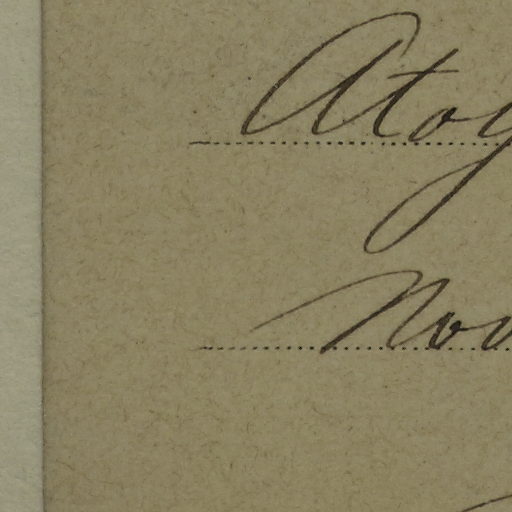 Atog
Nov